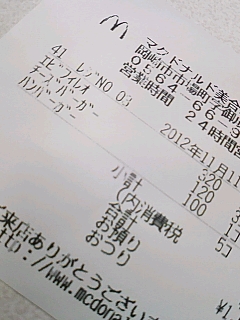 マクドナルド美合
岡崎市市場町字御所
0564-66-3
営業時間 24時間営
41 レジNO 03 2012年11月11
エビフィレオ 320
チーズバーガー 120
ハンバーガー 100
小計
(内消費税
合計
お預り
おつり
来店ありがとうござい
http://www.mcdona